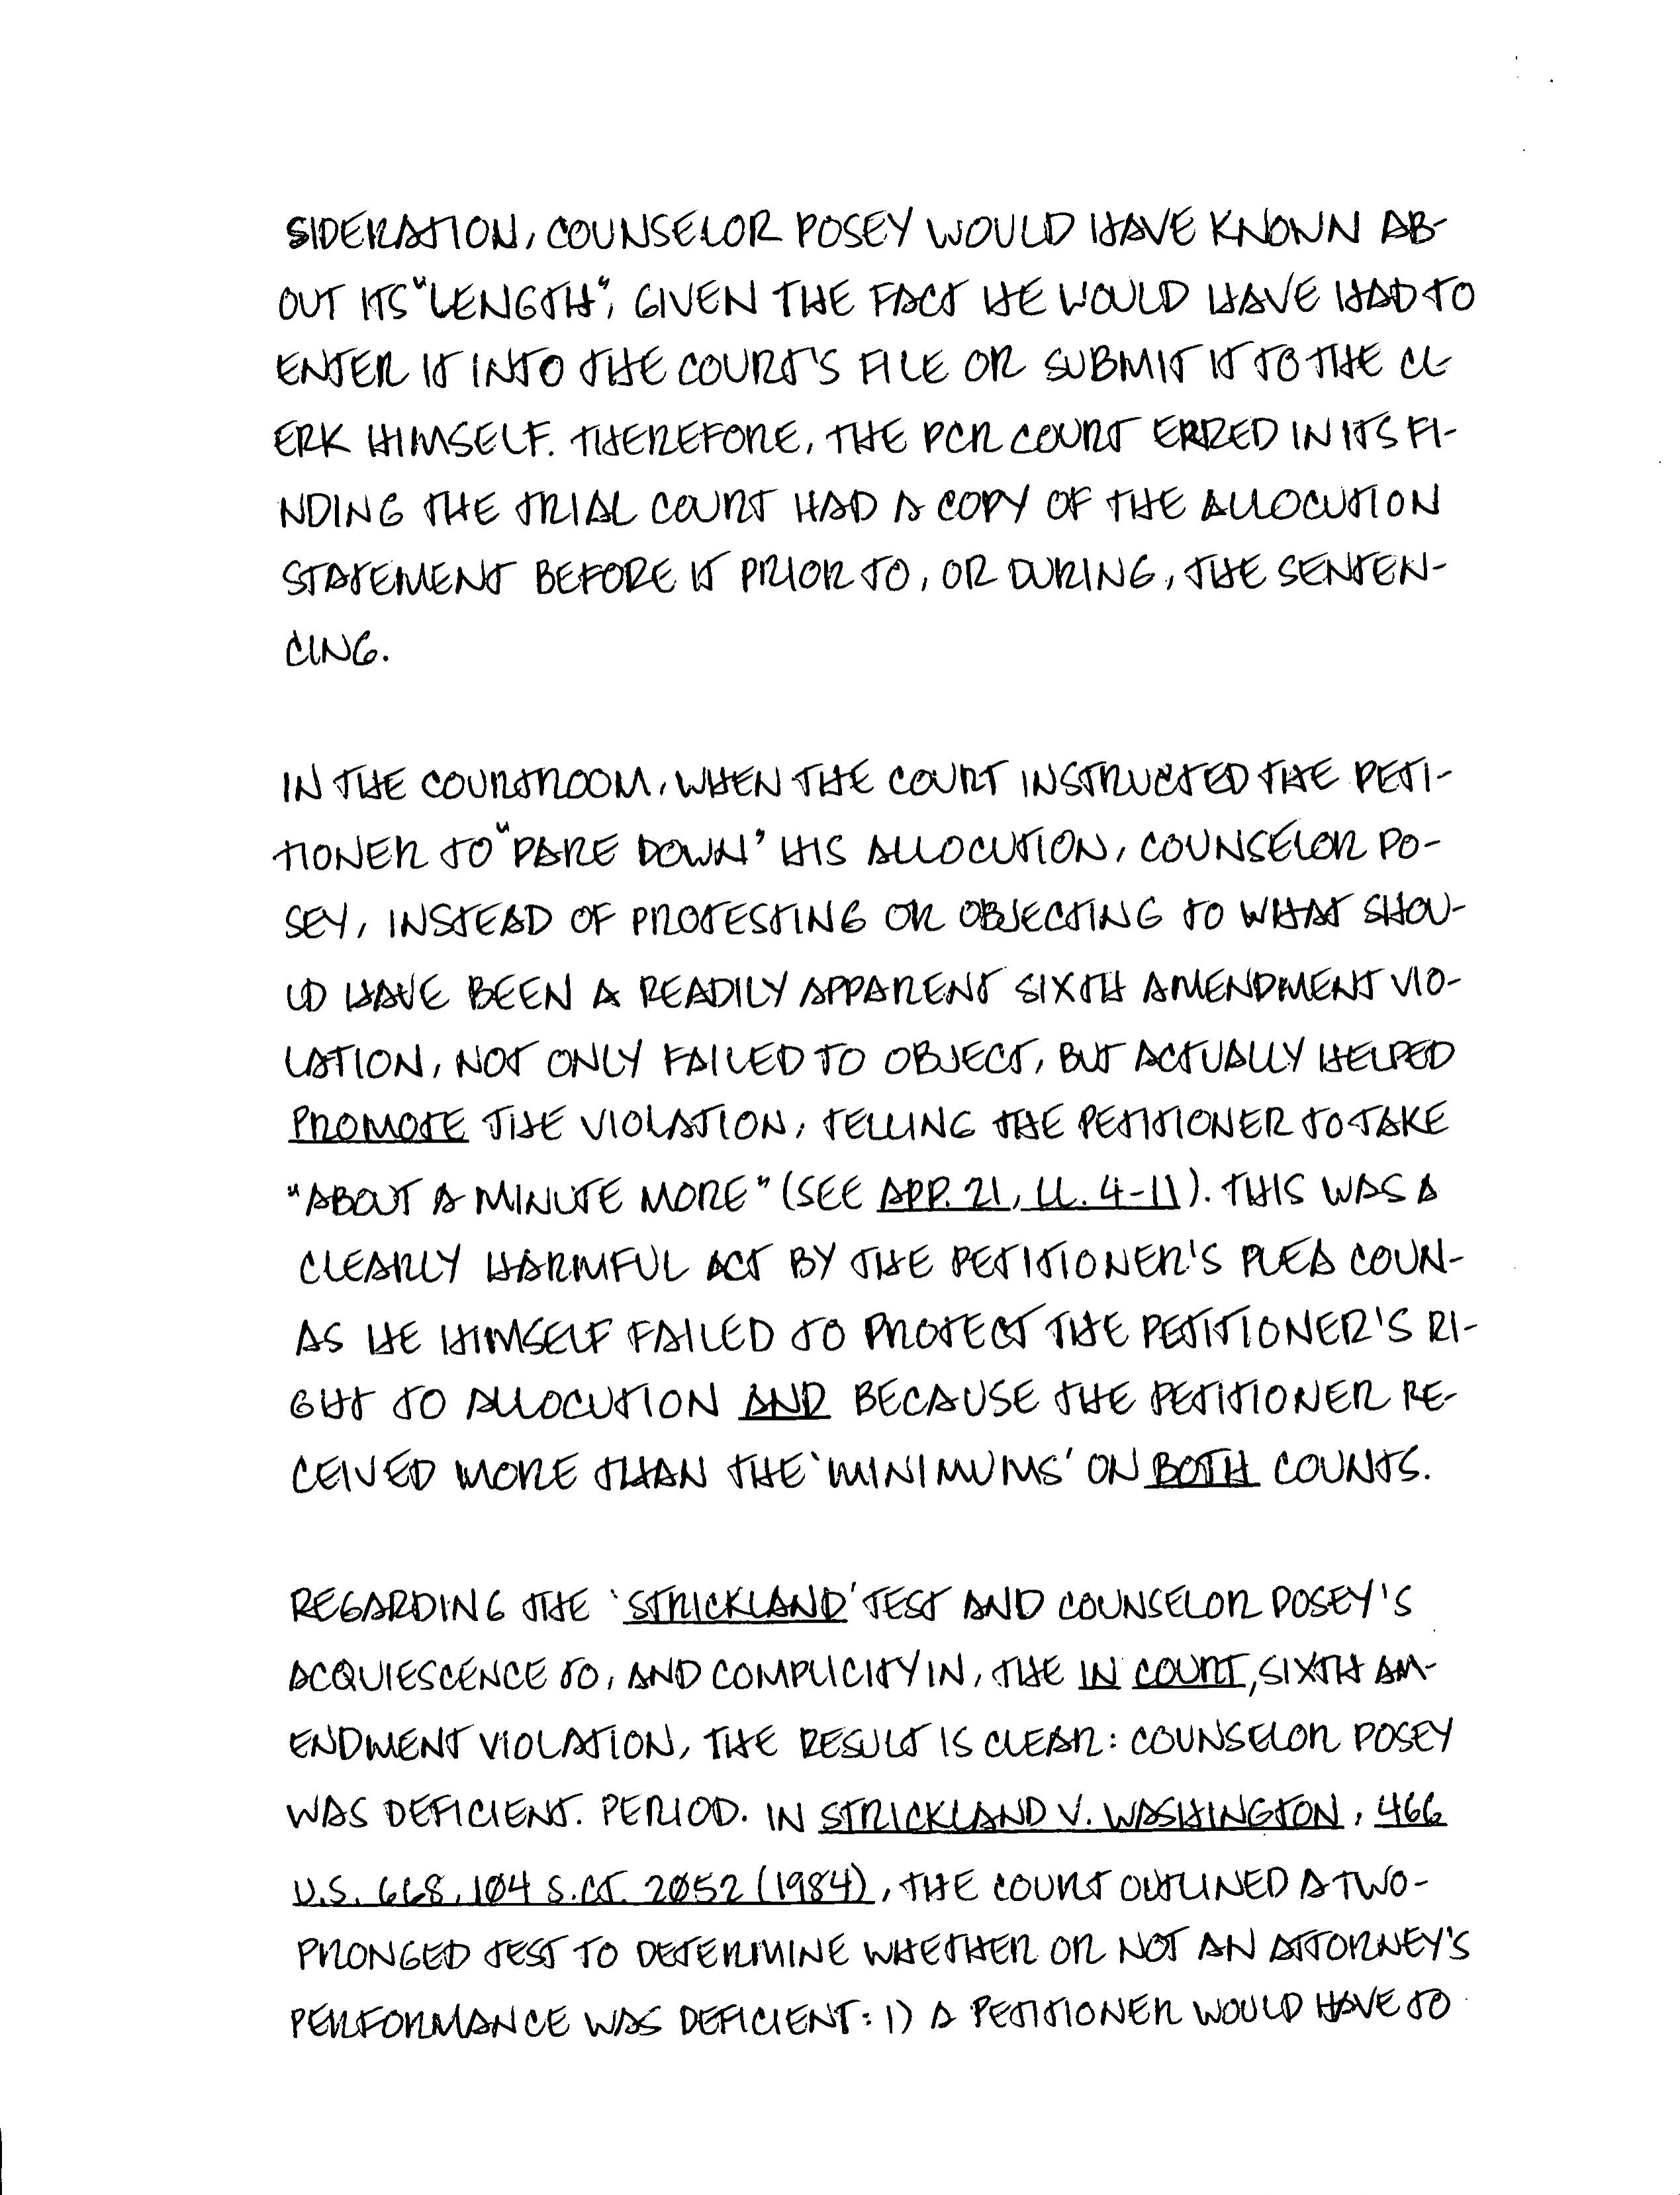 SIDERATION, COUNSELOR POSEY WOULD HAVE KNOWN AB-
OUT ITS "LENGTH", GIVEN THE FACT HE WOULD HAVE HAD TO
ENTER IT INTO THE COURT'S FILE OR SUBMIT IT TO THE CL-
ERK HIMSELF. THEREFORE, THE PCR COURT ERRED IN ITS FI-
NDING THE TRIAL COURT HAD A COPY OF THE ALLOCUTION
STATEMENT BEFORE IT PRIOR TO, OR DURING, THE SENTEN-
CING.

IN THE COURTROOM, WHEN THE COURT INSTRUCTED THE PETI-
TIONER TO "PARE DOWN" HIS ALLOCUTION, COUNSELOR PO-
SEY, INSTEAD OF PROTESTING OR OBJECTING TO WHAT SHOU-
LD HAVE BEEN A READILY APPARENT SIXTH AMENDMENT VIO-
LATION, NOT ONLY FAILED TO OBJECT, BUT ACTUALLY HELPED
PROMOTE THE VIOLATION, TELLING THE PETITIONER TO TAKE
"ABOUT A MINUTE MORE" (SEE APP. 21, LL. 4-11). THIS WAS A
CLEARLY HARMFUL ACT BY THE PETITIONER'S PLEA COUN-
AS HE HIMSELF FAILED TO PROTECT THE PETITIONER'S RI-
GHT TO ALLOCUTION AND BECAUSE THE PETITIONER RE-
CEIVED MORE THAN THE 'MINIMUMS' ON BOTH COUNTS.

REGARDING THE 'STRICKLAND' TEST AND COUNSELOR POSEY'S
ACQUIESCENCE TO, AND COMPLICITY IN, THE IN COURT, SIXTH AM-
ENDMENT VIOLATION, THE RESULT IS CLEAR: COUNSELOR POSEY
WAS DEFICIENT. PERIOD. IN STRICKLAND V. WASHINGTON, 466
U.S. 668, 104 S.CT. 2052 (1984), THE COURT OUTLINED A TWO-
PRONGED TEST TO DETERMINE WHETHER OR NOT AN ATTORNEY'S
PERFORMANCE WAS DEFICIENT: 1) A PETITIONER WOULD HAVE TO